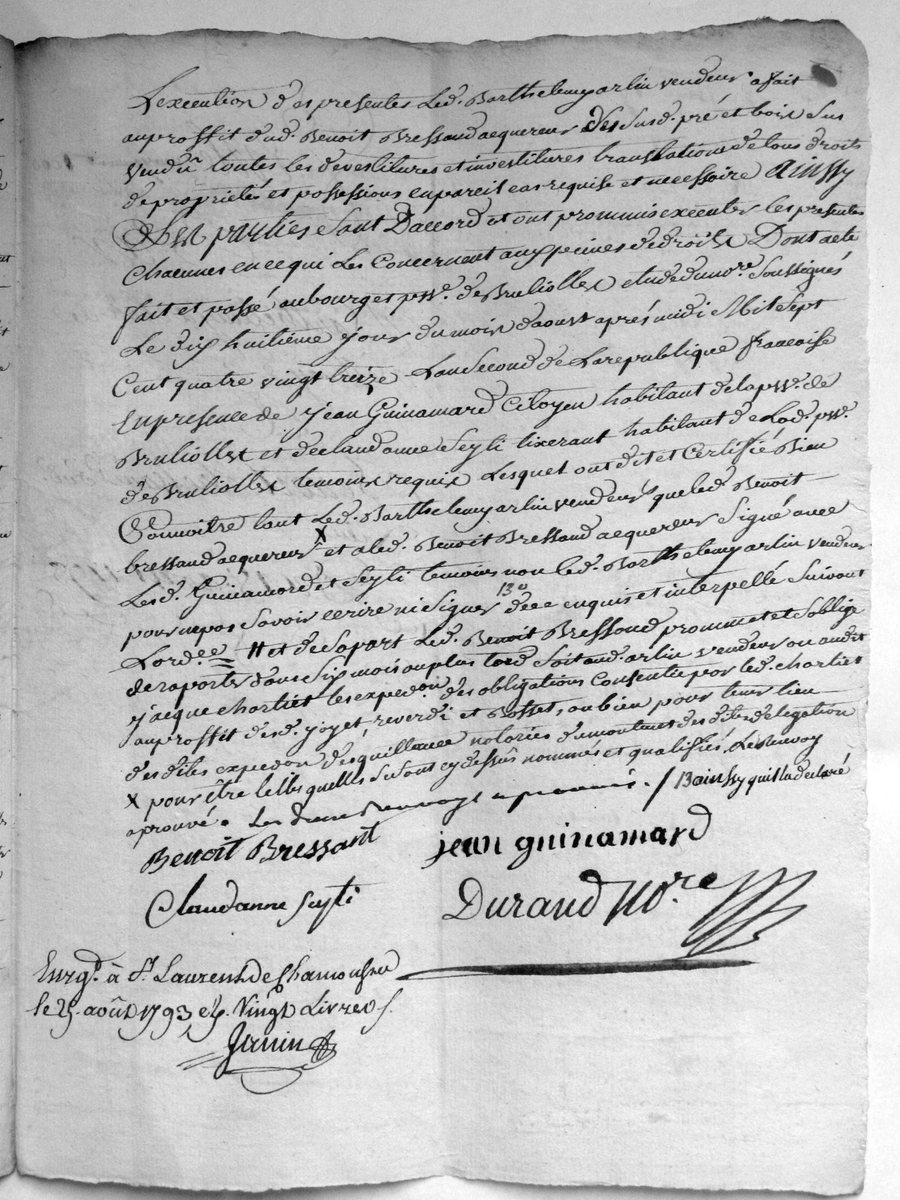 L'execution des presentes Led. Barthelemy arlin vendeur a fait
au proffit dud. Benoit Bressand acquereur des susd. pré et bois sus
vendu toutes les devestitures et investitures translations de tous droits
de proprietés et possessions en pareil cas requise et necessaire Ainssy
Les parties sont D'accord et ont prommis executer les presentes
Chacunes en ce qui Les Concernent aux peines de droits Dont acte
fait et passé au bourg et psse. de Bruliolles etude du nore. soussignés
Le dix huitième jour du moix d'aoust après midi Mil sept
Cent quatre vingt treize L'an second de La republique francoise
En presence de jean Guinamard Citoyen habitant de la psse. de
Bruliolles et de claudanne Seyti tixerant habitant de Lad. psse.
de Bruliolles temoins requis Lesquel ont dit et Certifié Bien
Connoitre tant Led. Barthelemy arlin vendeur que led. Benoit
bressand acquereur X et a led. Benoit Bressand acquereur signé avec
Lesd. Guinamard et Seyti temoins non led. Barthelemy arlin vendeur
pour ne pas savoir écrire ni signer de ce enquis et interpellé suivant
L'ordce // et de sa part Led. Benoit Bressand prommet et s'oblige
de raporter dans six mois au plus tard soit aud. arlin vendeur ou audit
jacque chartiet les expedon. des obligations Consentie par led. chartiet
au proffit desd. joyet, reverdi et Bosset, ou bien pour tenir lieu
des dites expedon. des quittance notariés du montent des dites delegation
X pour être telles quelles susont cy dessus nommés et qualiffiés, Le renvoy
aprouvé. Les deux renvoys approuvés. / Bainssy quil la declaré
Benoit Bressant jean guinamard
Claudanne Seyti Durand Nore
Enrgé. à St. Laurent de Chamousset
le 25 août 1793 Vingt Livres
Janin